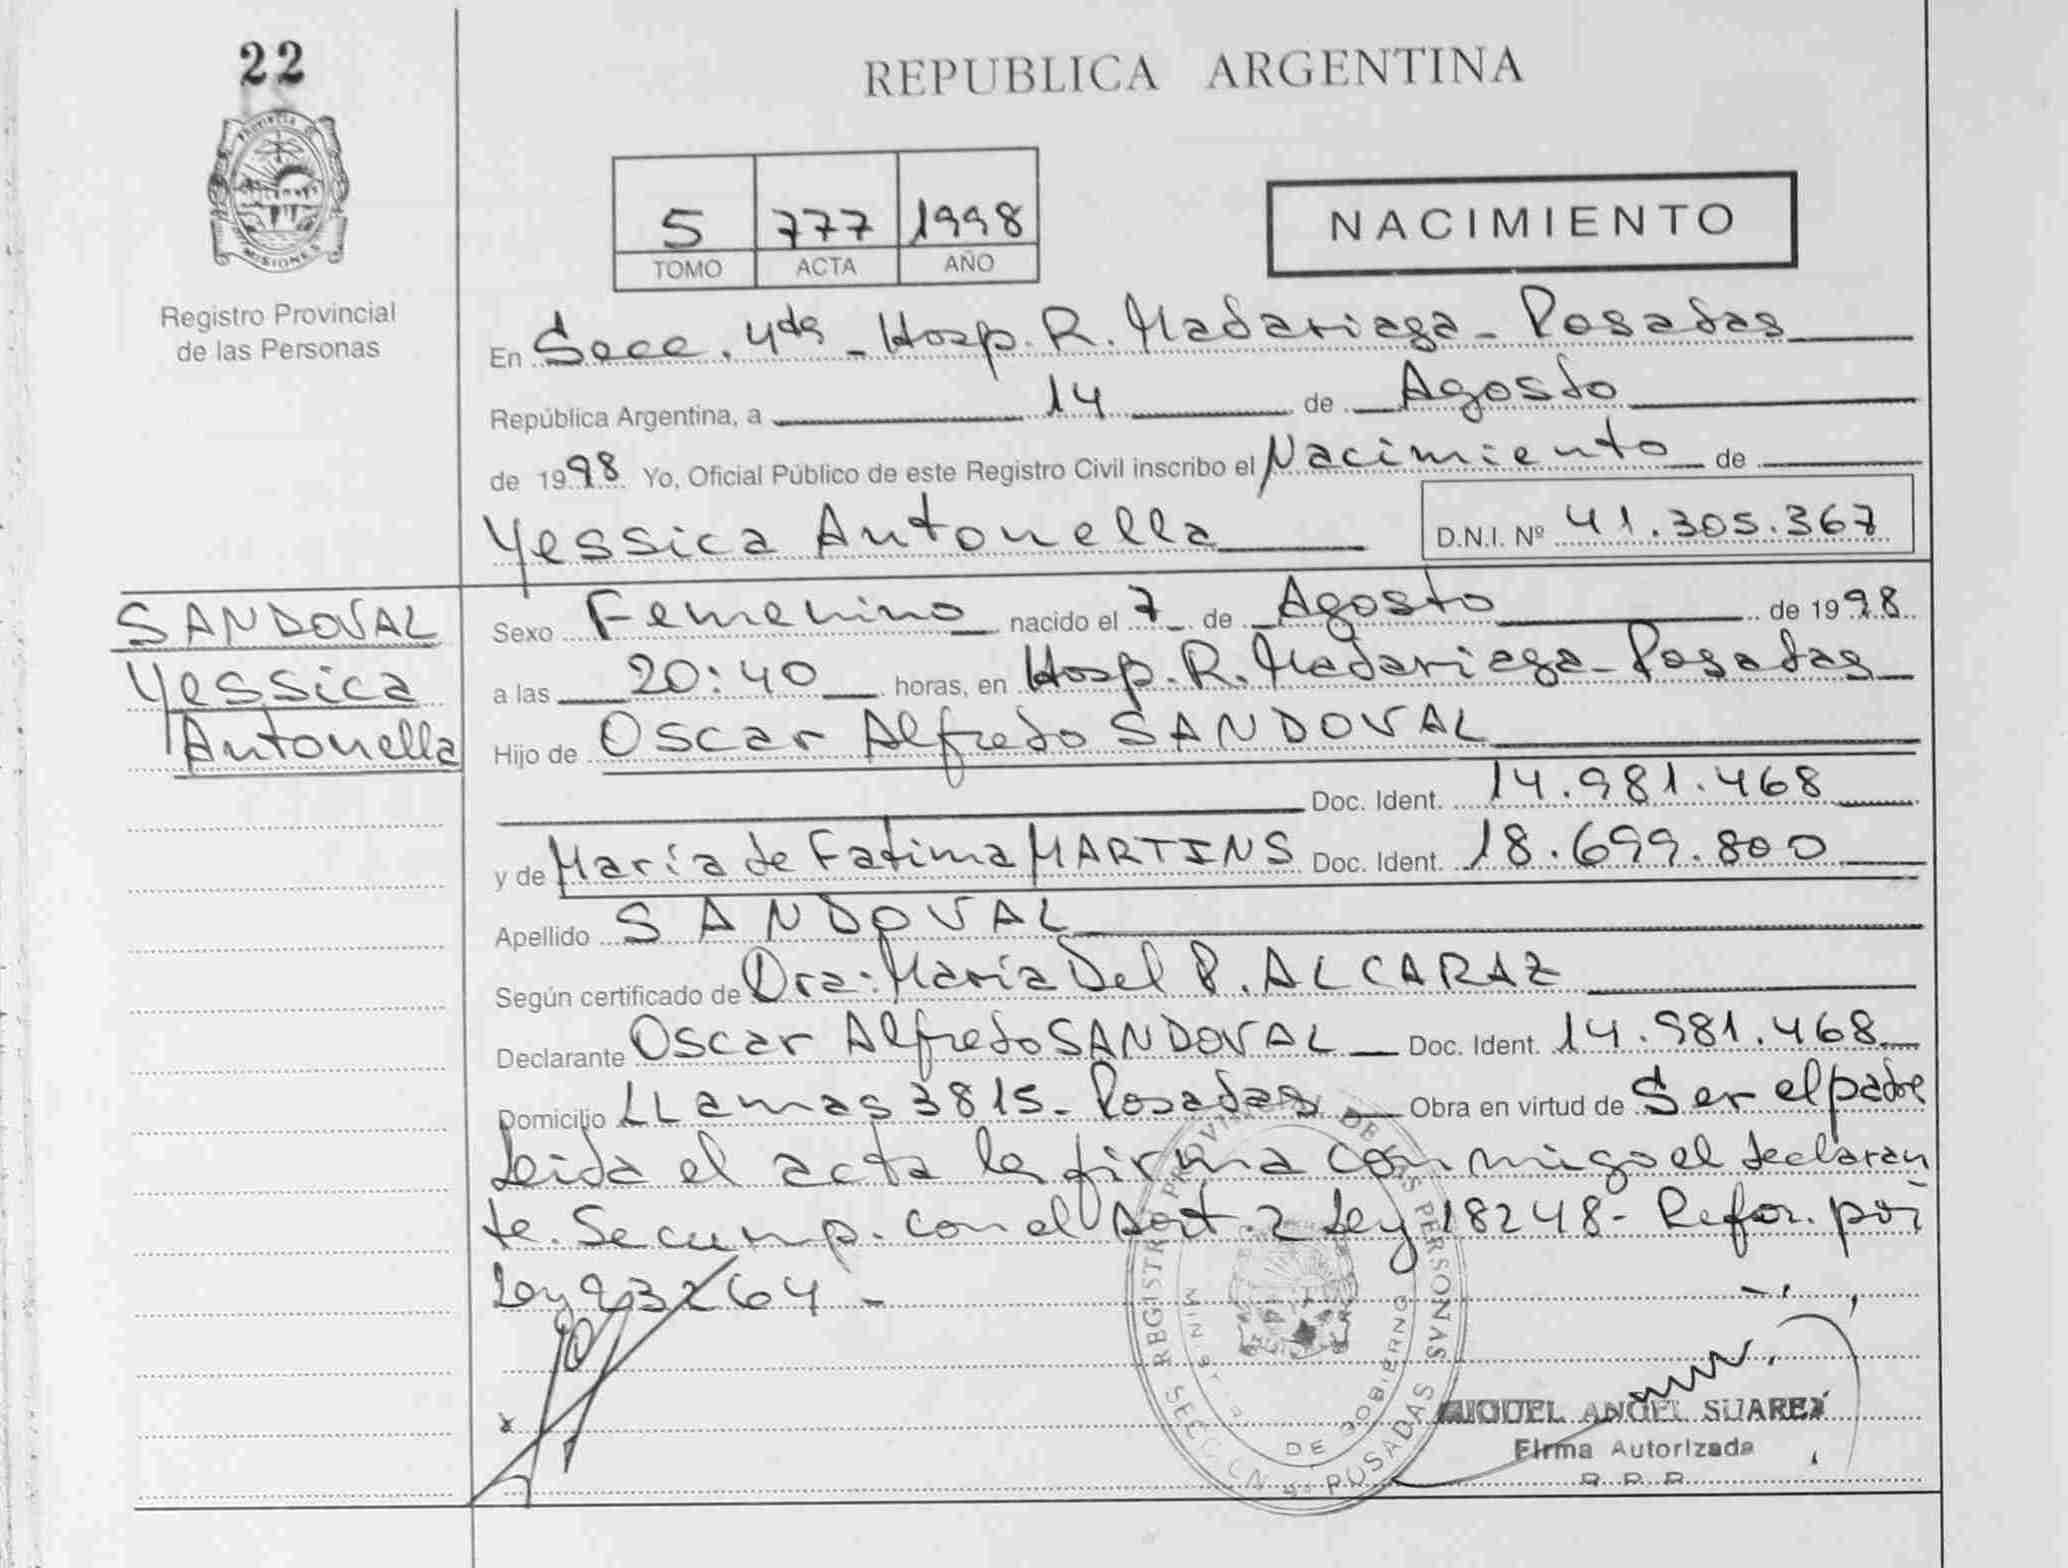 22
REPUBLICA ARGENTINA
PROVINCIA DE
MISIONES
Registro Provincial
de las Personas
5 777 1998
TOMO ACTA AÑO
NACIMIENTO
En Secc. 4ta - Hosp. R. Madariaga - Posadas
República Argentina, a 14 de Agosto
de 1998 Yo, Oficial Público de este Registro Civil inscribo el Nacimiento de
Yessica Antonella D.N.I. Nº 41.305.367
SANDOVAL
Yessica
Antonella
Sexo Femenino nacido el 7 de Agosto de 1998
a las 20:40 horas, en Hosp. R. Madariaga - Posadas
Hijo de Oscar Alfredo SANDOVAL
Doc. Ident. 14.981.468
y de María de Fatima MARTINS Doc. Ident. 18.699.800
Apellido SANDOVAL
Según certificado de Dra: María Del P. ALCARAZ
Declarante Oscar Alfredo SANDOVAL Doc. Ident. 14.981.468
Domicilio LLamas 3815 - Posadas Obra en virtud de Ser el padre
Leida el acta la firma conmigo el declaran
te. Se cump. con el Art. 2 Ley 18248 - Refor. por
Ley 23264 -
REGISTRO PROVINCIAL DE LAS PERSONAS
DE GOBIERNO
POSADAS
MIGUEL ANGEL SUAREZ
Firma Autorizada
R. P. P.